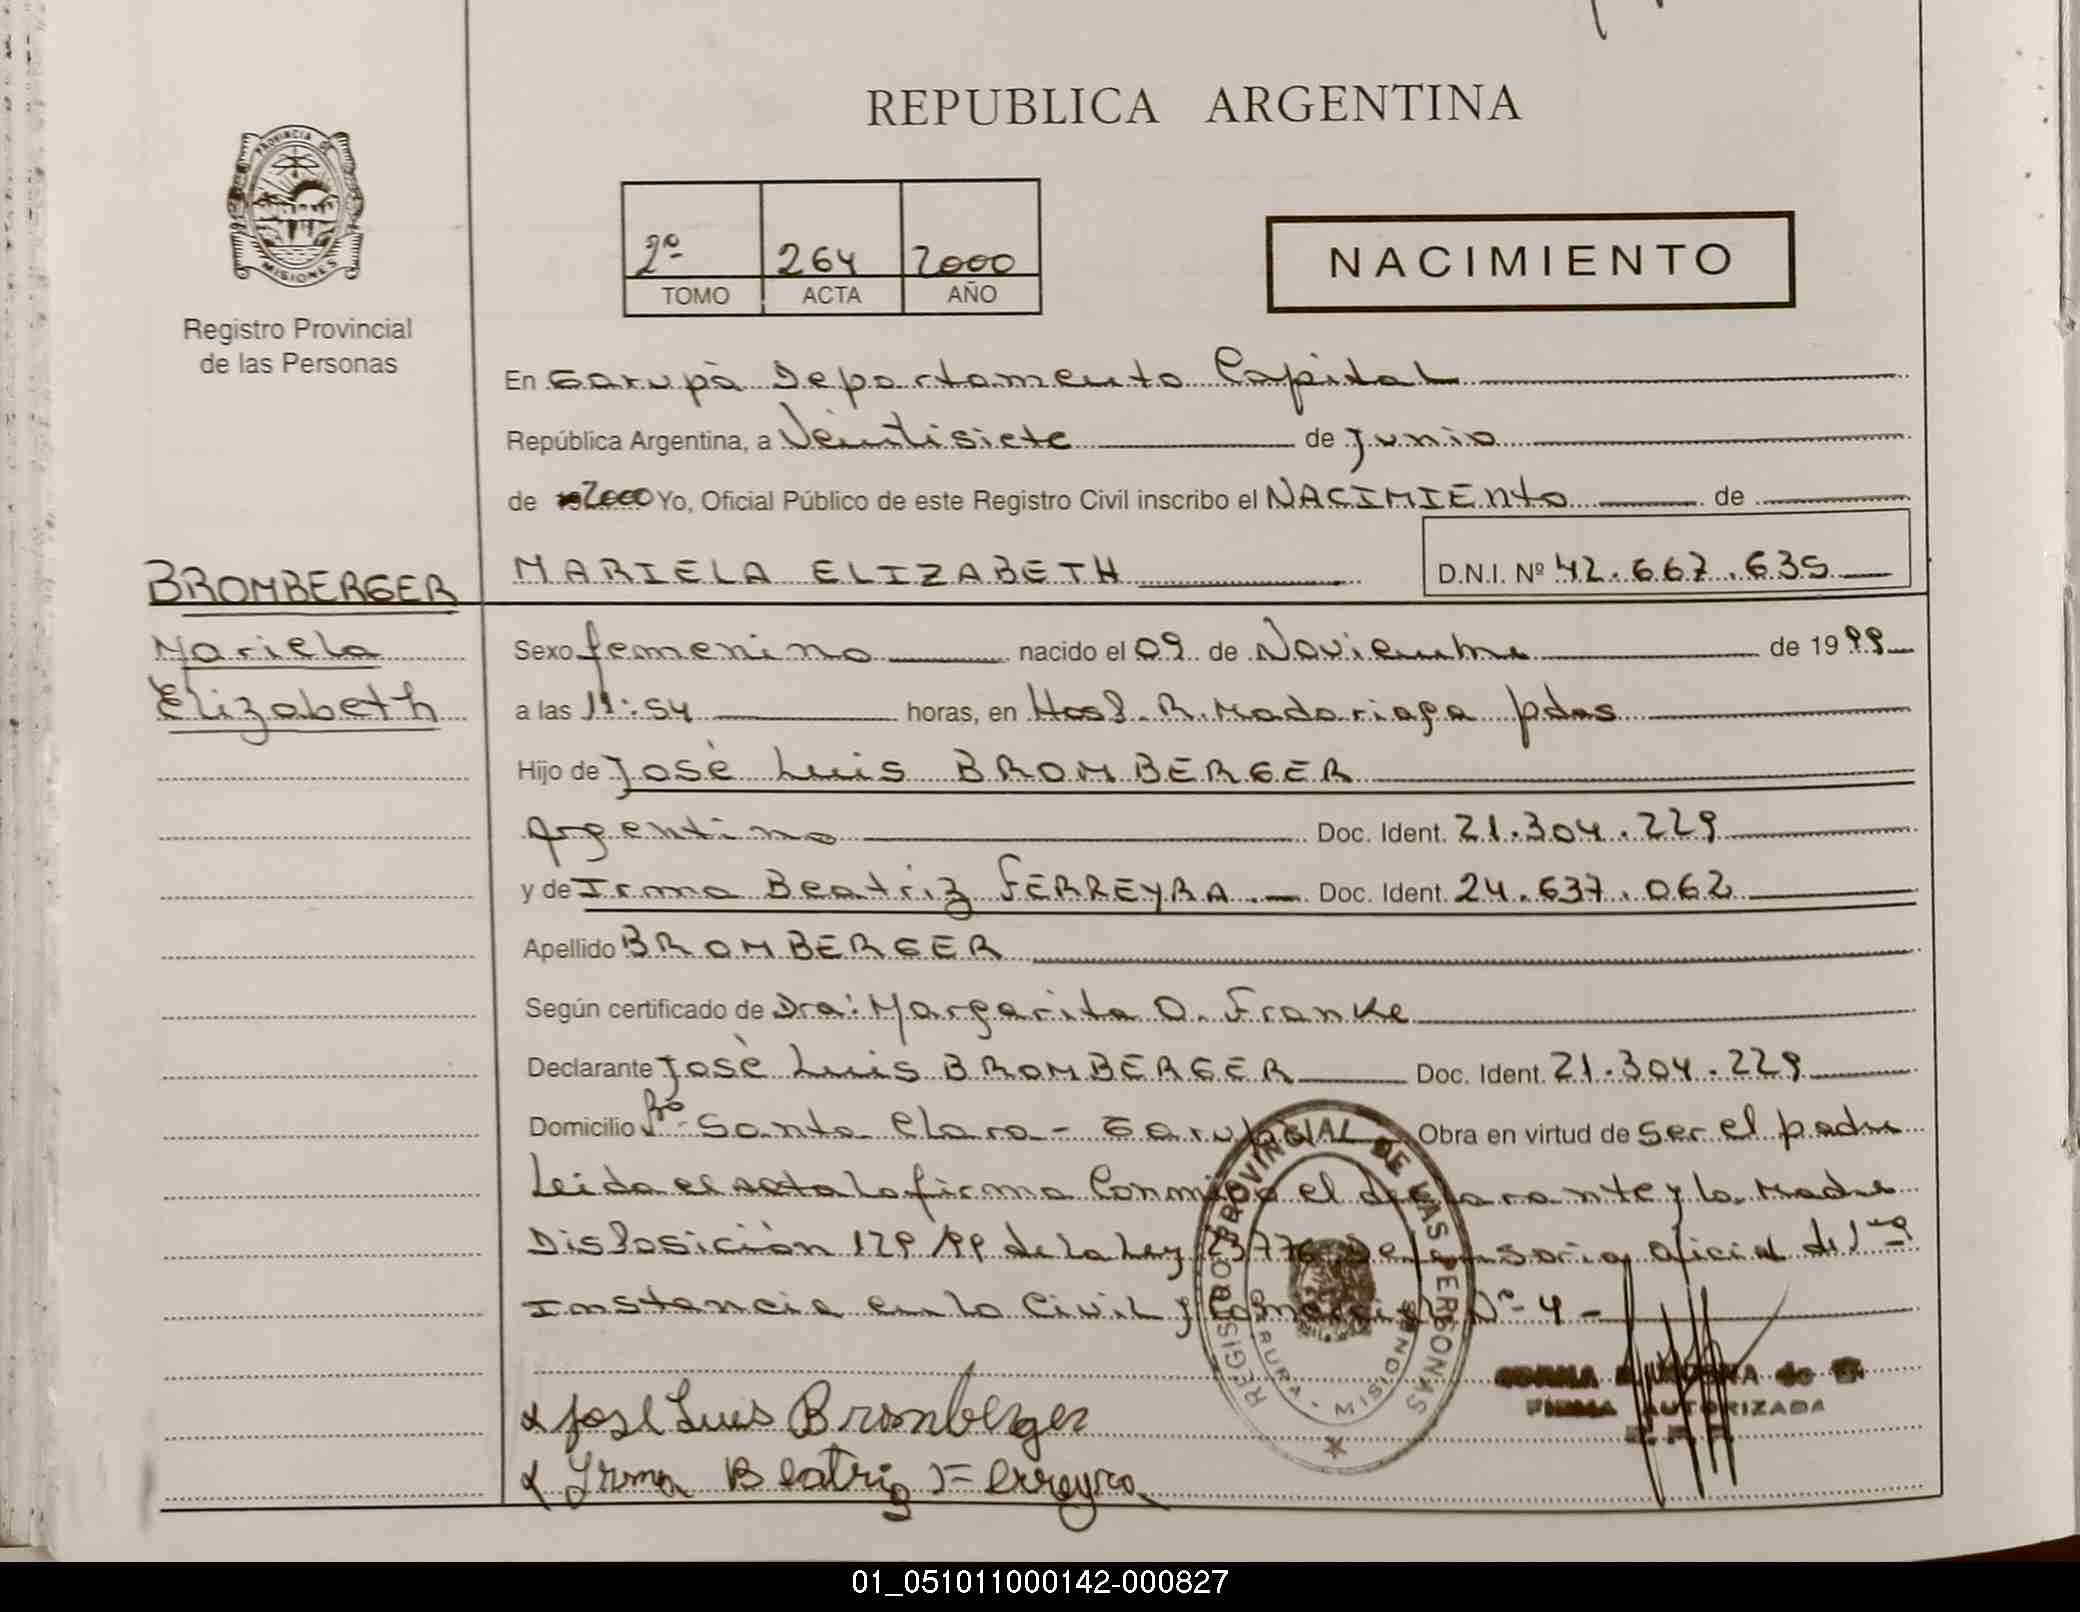 REPUBLICA ARGENTINA
PROVINCIA DE
MISIONES
Registro Provincial
de las Personas
2º 264 2000
TOMO ACTA AÑO
NACIMIENTO
En Garupà Departamento Capital
República Argentina, a Veintisiete de Junio
de 2000 Yo, Oficial Público de este Registro Civil inscribo el NACIMIENto de
BROMBERGER
Mariela
Elizabeth
MARIELA ELIZABETH D.N.I. Nº 42.667.635
Sexo femenino nacido el 09 de Noviembre de 1999
a las 11:54 horas, en Hosp. R. Madariaga pdas
Hijo de Josè Luis BROMBERGER
Argentino Doc. Ident. 21.304.229
y de Irma Beatriz FERREYRA.- Doc. Ident. 24.637.062
Apellido BROMBERGER
Según certificado de Dra: Margarita O. Franke
Declarante Josè Luis BROMBERGER Doc. Ident. 21.304.229
Domicilio Bº- Santa Clara - Garupà Obra en virtud de ser el padre
Leida el acta la firma Conmigo el declarante y la Madre
Disposición 129/99 de la Ley 23776 Defensoria Oficial de 1ra
Instancia en lo Civil y Comercial Nº- 4 -
REGISTRO PROVINCIAL DE LAS PERSONAS
GARUPA MISIONES
de
FIRMA AUTORIZADA
x Jose Luis Bromberger
x Irma Beatriz Ferreyra
01_051011000142-000827